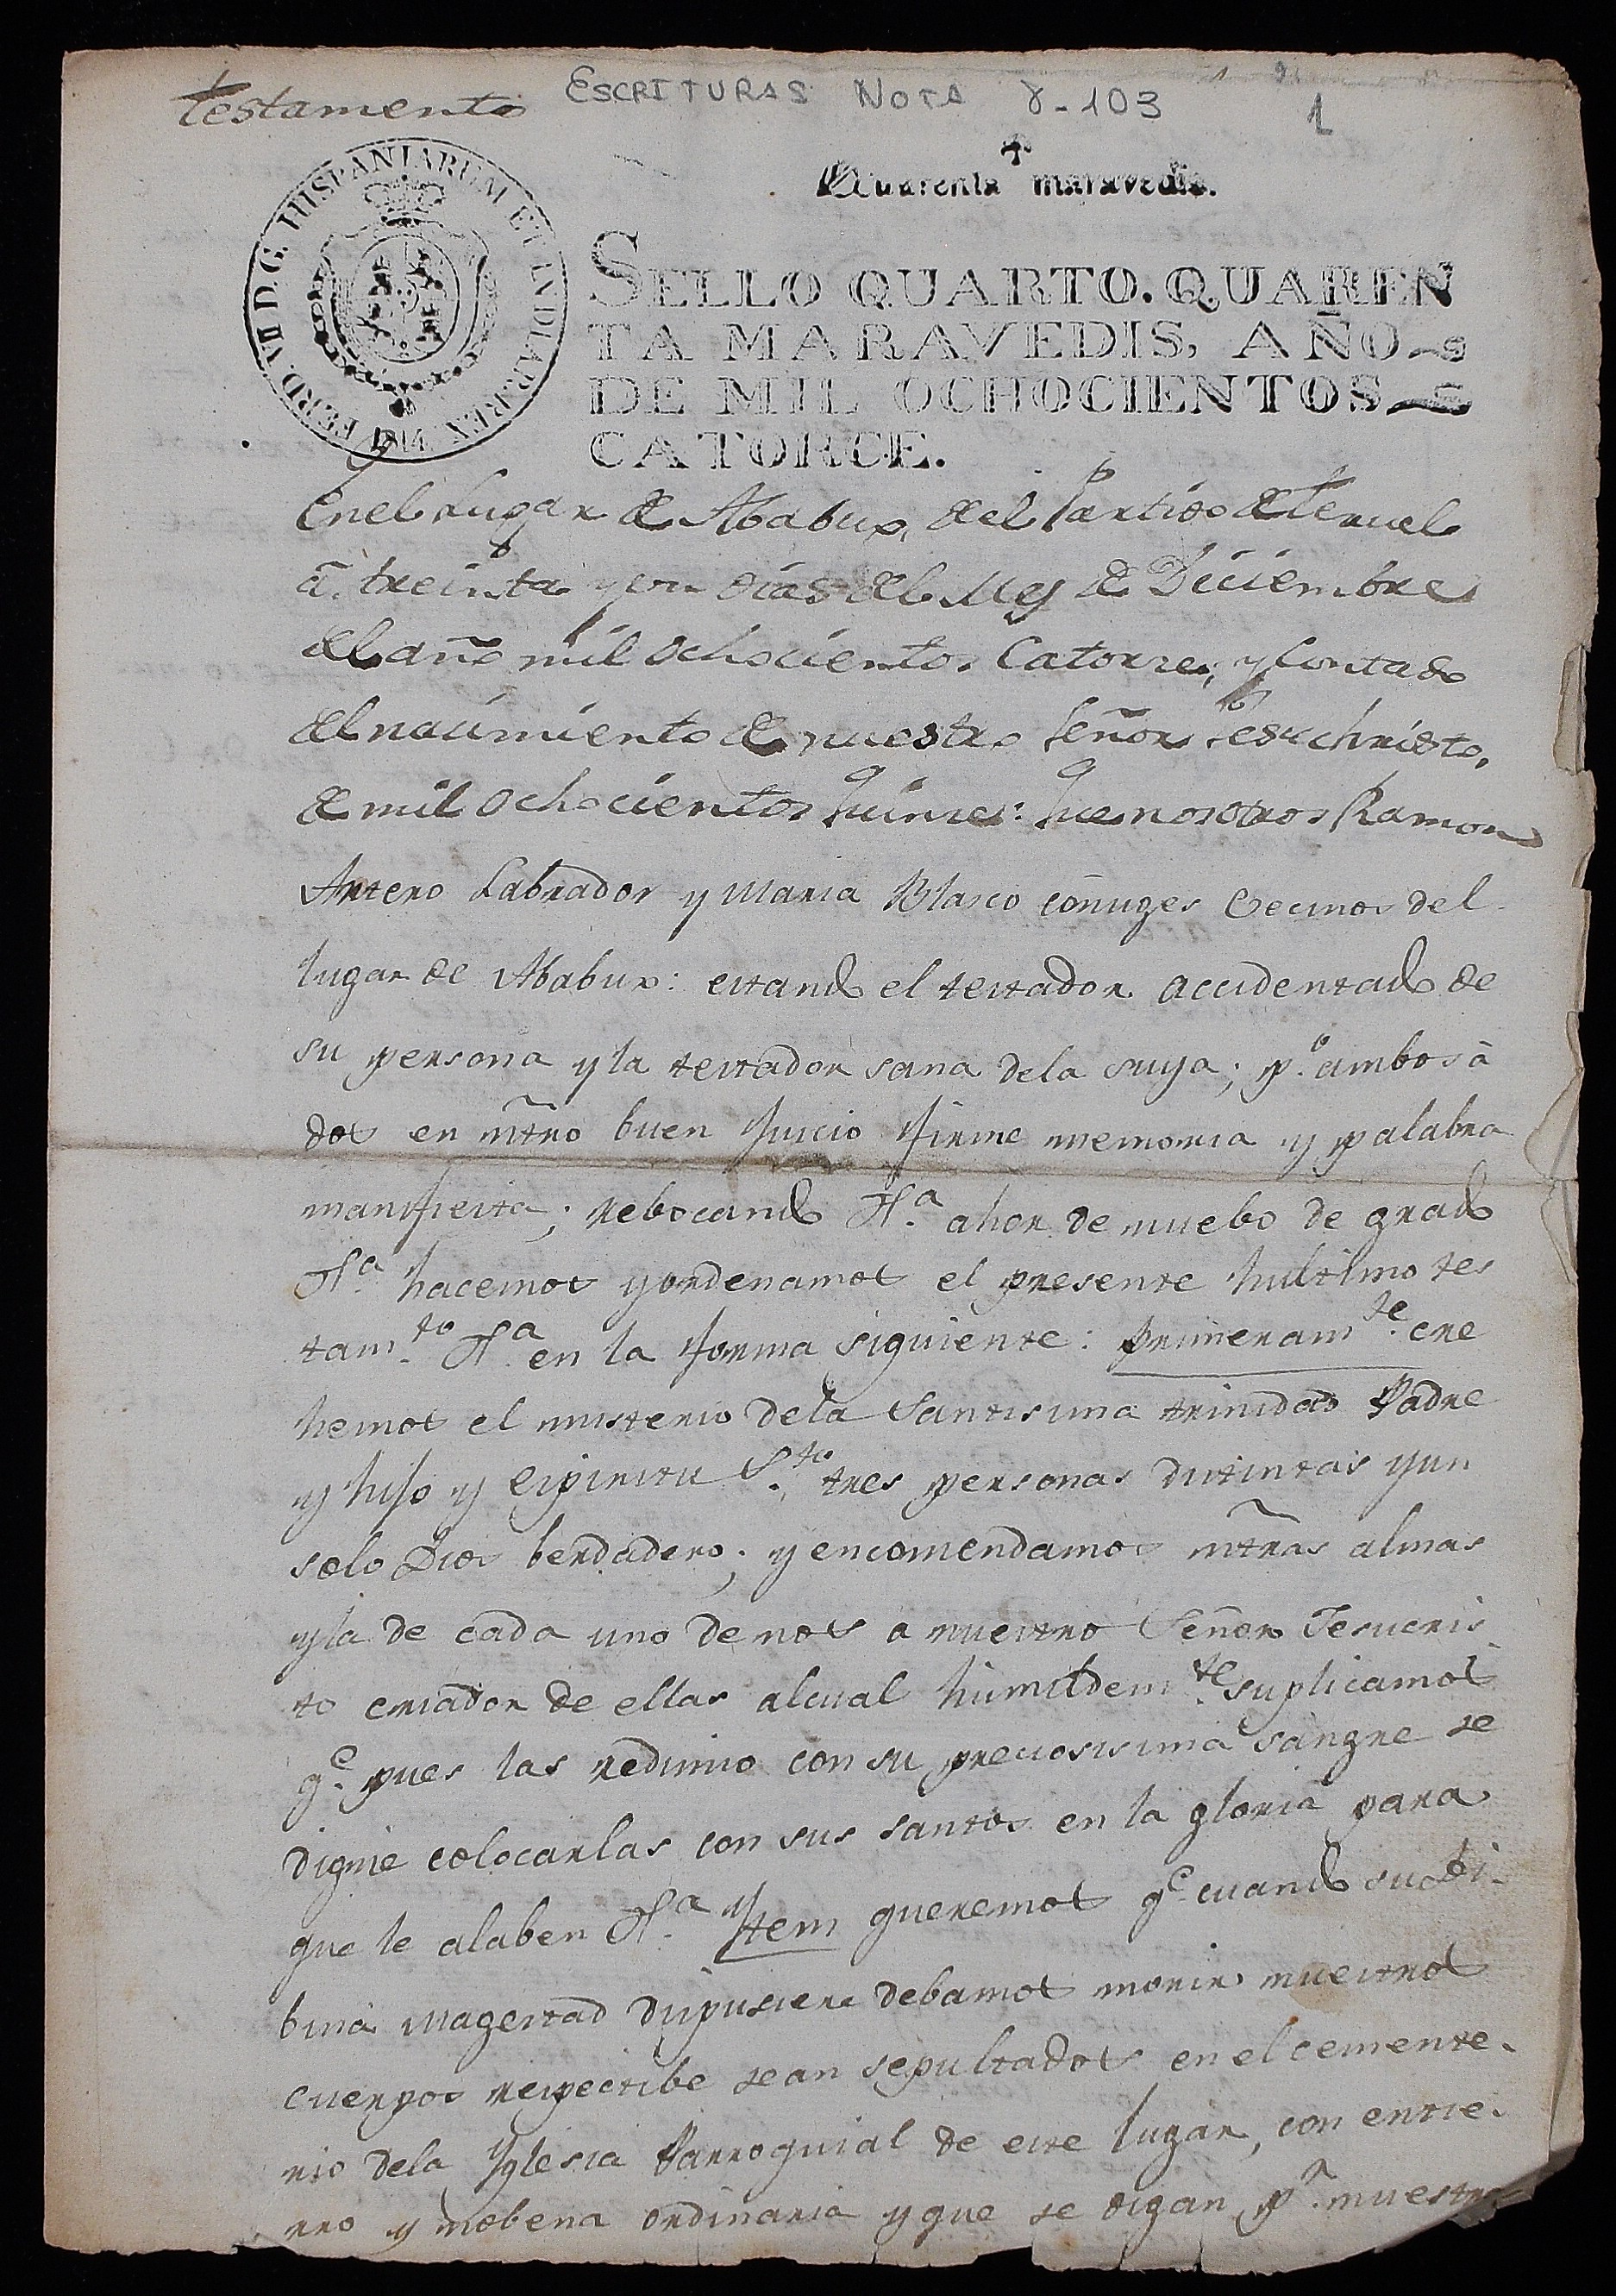 testamento
ESCRITURAS NOTA 8-103
1
Quarenta maravedis.
FERD. VII D. G. HISPANIARUM ET INDIAR. REX. 1814
SELLO QUARTO. QUAREN
TA MARAVEDIS, AÑO
DE MIL OCHOCIENTOS
CATORCE.
En el Lugar de Ababux, del Partido de Teruel
â treinta y un dias del Mes de Diciembre
del año mil ochocientos Catorze; y Contado
del nacimiento de nuestro Señor Jesuchristo,
de mil ochocientos Quince: Que nosotros Ramon
Antero Labrador y Maria Blasco cónuges Vecinos del
lugar de Ababux: estando el testador accidentado de
su persona y la testador sana dela suya; p.º ambos à
dos en ñtro buen Juicio firme memoria y palabra
manifiesta; rebocando &.ª ahor de nuebo de grado
&.ª hacemos y ordenamos el presente hultimo tes
tam.to &.ª en la forma siguiente: Primeram.te cre
hemos el misterio dela Santisima trinidad Padre
y hijo y espiritu S.to tres personas distintas y un
solo Dios berdadero; y encomendamos ñtras almas
y la de cada uno de nos a nuestro Señor Jesucris
to criador de ellas alcual humildem.te suplicamos
q.e pues las redimio con su preciosisima sangre se
digne colocarlas con sus santos en la gloria para
que le alaben &.ª Ytem queremos q.e cuando su Di-
bina Magestad dispusiere debamos morir nuestros
cuerpos respectibe sean sepultados en el cemente-
rio dela Yglesia Parroquial de este lugar, con entie-
rro y nobena ordinaria y que se digan p.r nuestras